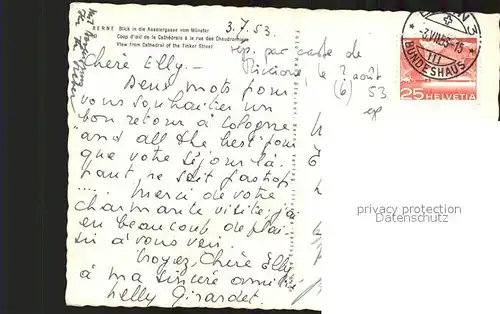 BERNE Blick in die Kesslergasse vom Münster
Coup d'œil de la Cathédrale à la rue des Chaudronniers
View from Cathedral of the Tinker Street
3.7.53.
rép. par carte de
le 2 août
(6) 53
Chère Elly. _
Deux mots pour
vous souhaiter un
bon retour à Cologne
"and all the best" pour
que votre séjour là-
haut, ne soit pas trop
.... Merci de votre
charmante visite, j'ai
eu beaucoup de plai-
sir à vous voir.
Croyez, Chère Elly
à ma sincère amitié
Nelly Girardet.
BUNDESHAUS
25 HELVETIA
privacy protection
Datenschutz